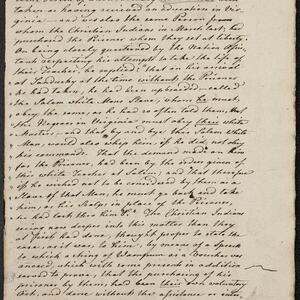 Taken as having received an Education in Vir-
ginia — and was also the same Person from
whom the Christian Indians in March last, had
purchased the Prisoner whom they set at liberty.
On being closely questioned by the Nation Assis-
tants respecting his attempt to take the life of
their Teacher, he replied: that on his arrival
at Sandusky at the time without the Prisoner
he had taken, he had been upbraided — called
the Salem white Mans Slave, whom he must
obey, the same, as he had so often told them, that
the Negroes in Virginia must obey their white
Masters — and that by and bye this Salem white
Man, would also whip him, if he did not obey
his commands. That the demand made on him
for the Prisoner, had been by the order given of
this white Teacher at Salem; and that therefore
if he wished not to be considered by them as a
Slave of that Man, he must go back and take
him, or his Scalp in place of the Prisoner,
he had lost thro him &c. The Christian Indians
seeing now deeper into this matter than they
at first had done, thought proper to state the
case, as it was, to him, by means of a Speech
to which a string of Wampum as a Voucher was
annexed; which with prisoner in addition
served to prove, that the purchasing of his
prisoner by them, had been their own voluntary
Act, and done without the assistance or inter-